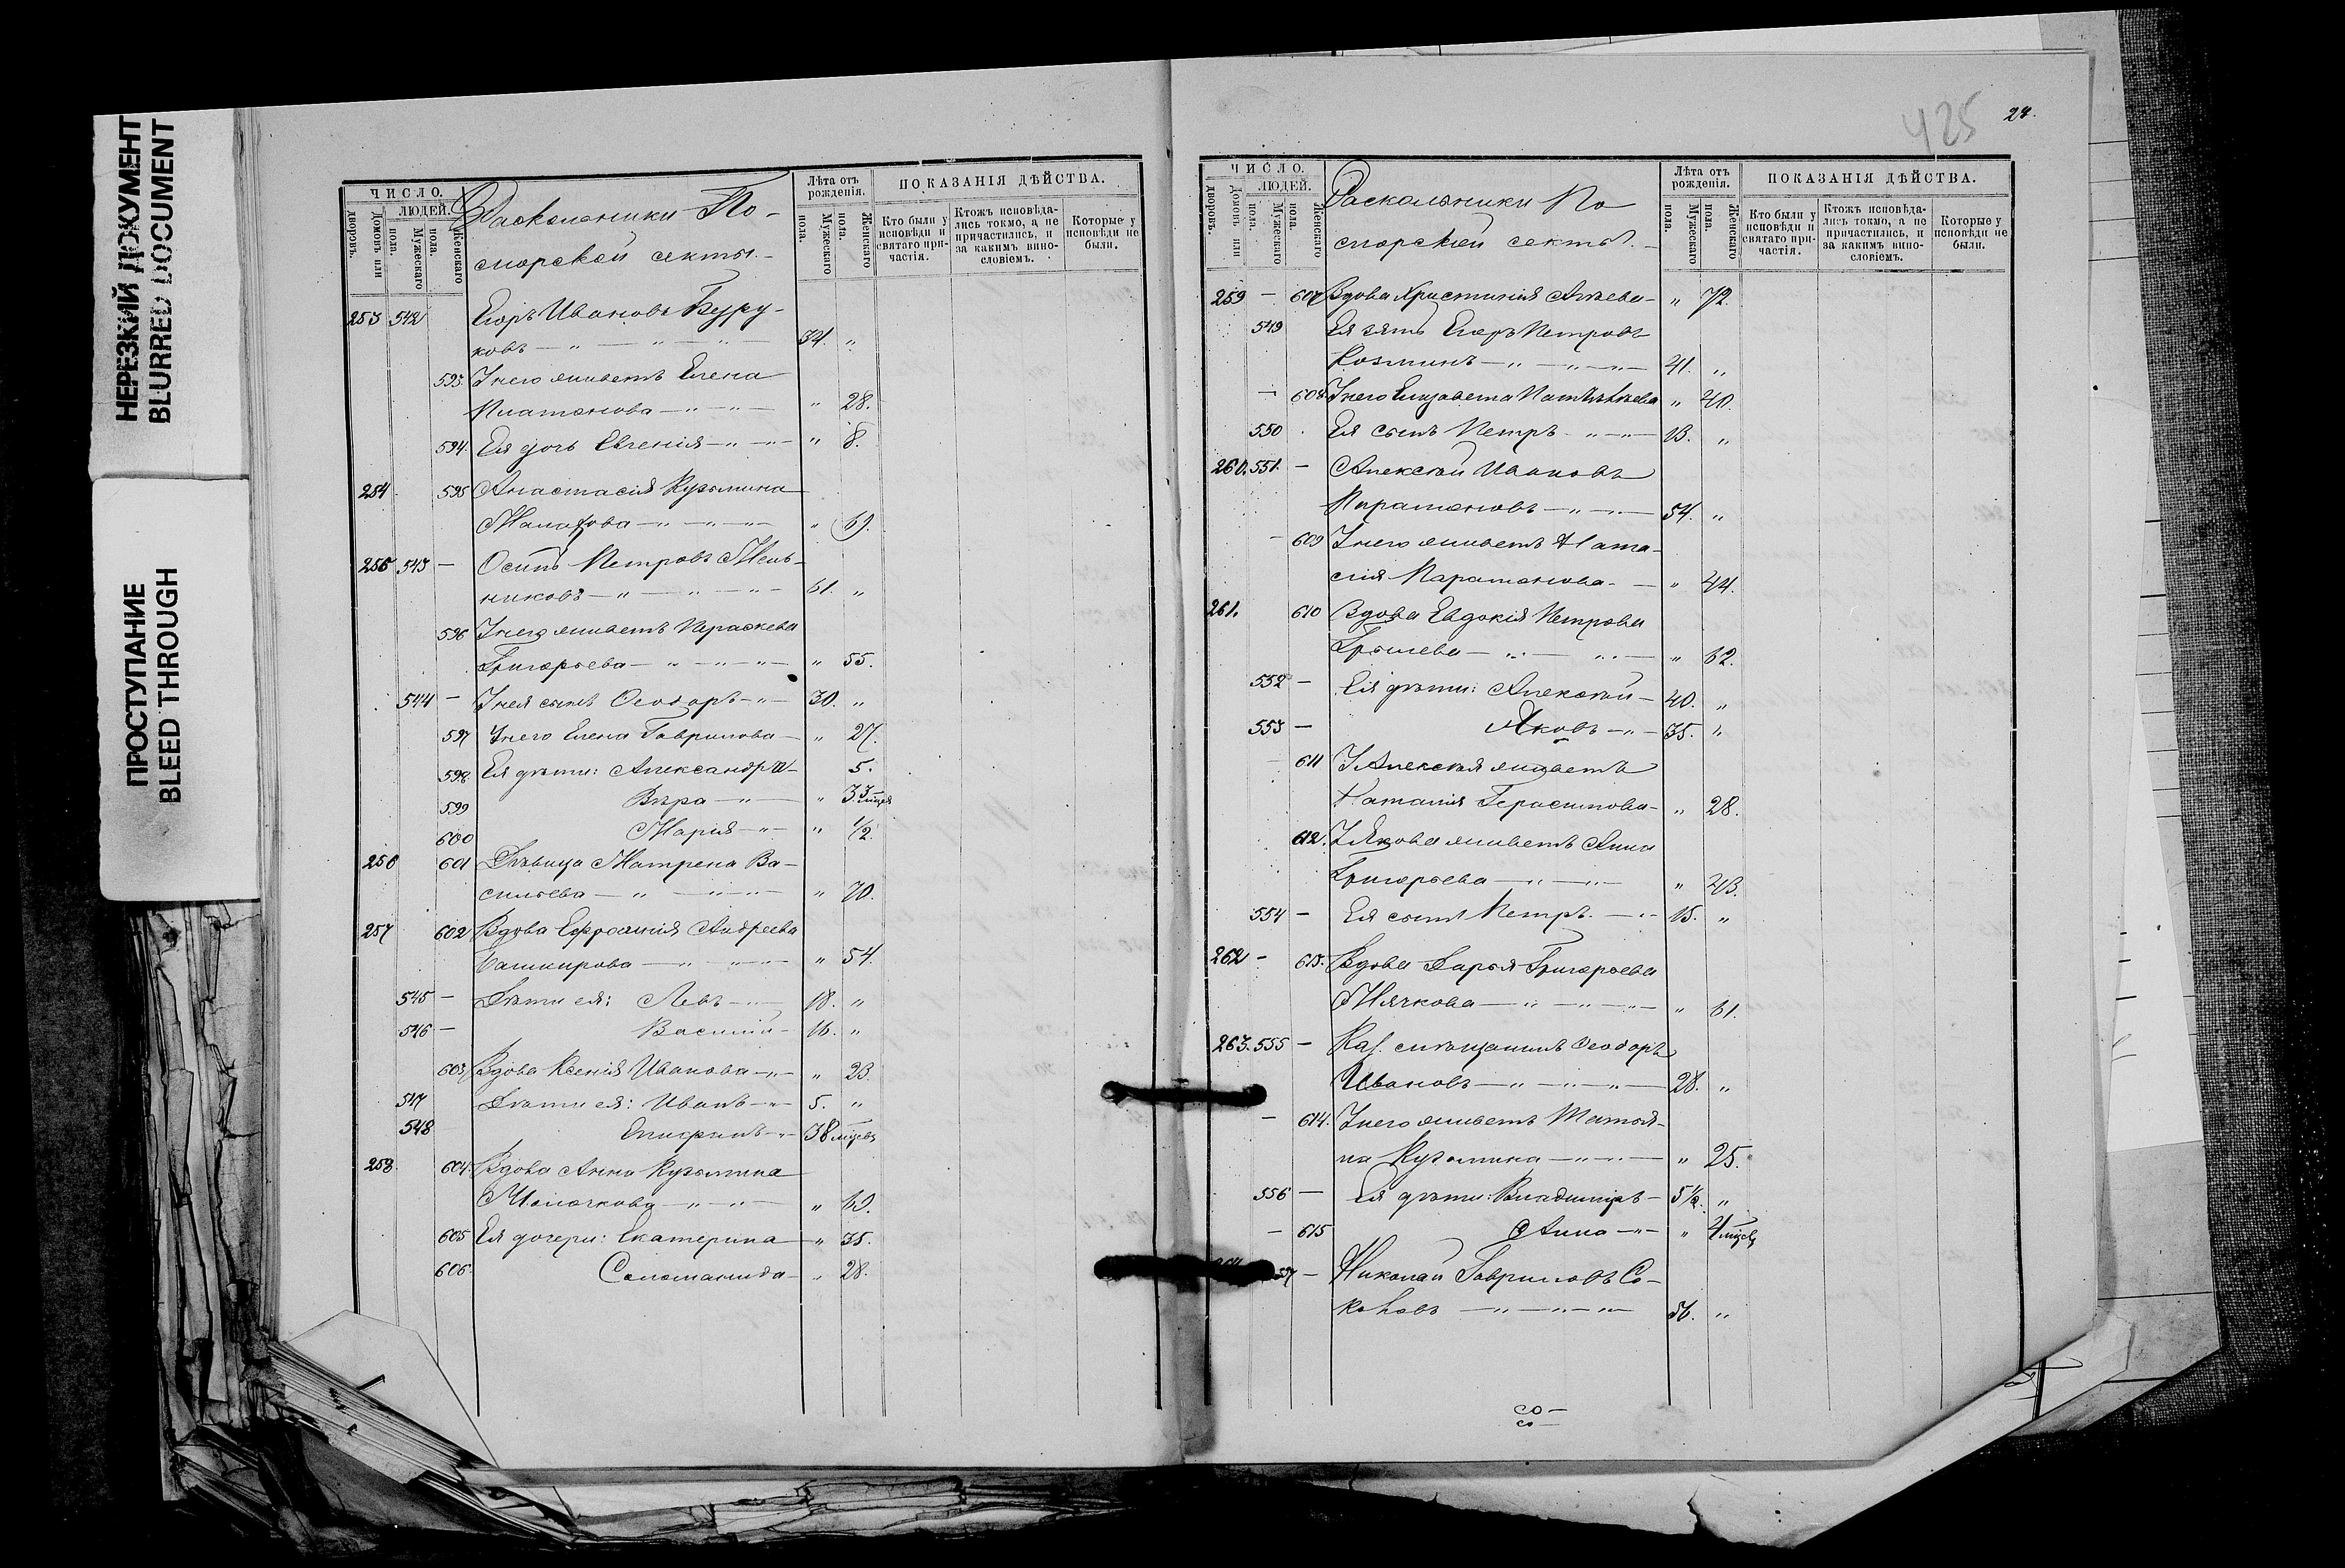 НЕРЕЗКИЙ ДОКУМЕНТ
BLURRED DOCUMENT
ПРОСТУПАНИЕ
BLEED THROUGH
ЧИСЛО.
ЛЮДЕЙ.
Домовъ или дворовъ.
Мужескаго пола.
Женскаго пола.
Раскольники По-
морской секты.-
Лѣта отъ рожденія.
Мужескаго пола.
Женскаго пола.
ПОКАЗАНІЯ ДѢЙСТВА.
Кто были у исповѣди и святаго причастія.
Ктожъ исповѣдались токмо, а не причастились, и за какимъ винословіемъ.
Которые у исповѣди не были.
253 542 Егоръ Ивановъ Буру-
ковъ — " — " — " — 34. "
593 У него живетъ Елена
Платонова — " — " — " 28.
594. Ея дочь Евгенія — " — " — " 8.
254 595 Анастасія Кузьмина
" 69.
255 543 — Осипъ Петровъ Мель-
никовъ — " — " — " — 61. "
596 У него живетъ Параскева
Григорьева — " — " — " — " 55.
544 — У нея сынъ Ѳеодоръ — " — 30. "
597 У него Елена Гаврилова — " 27.
598 Ея дѣти: Александра — 5.
599 Вѣра — " — " 3
600 Марія — " — " 1/2
256 601 Дѣвица Матрена Ва-
сильева — " — " — " — " 70.
257 602 Вдова Ефросинія Андреева
Башкирова — " — " — " — " 54.
545 — Дѣти ея: Левъ — " — 18. "
546 — Василій — 16. "
603 Вдова Ксенія Иванова — " — " 23.
547 Дѣти ея: Иванъ — " — 5. "
548 мцевъ
258. 604 Вдова Анна Кузьмина
Молочкова — " — " — "
605 Ея дочери: Екатерина — " 35.
606. Соломанида — " 28.
425
ЧИСЛО.
ЛЮДЕЙ.
Домовъ или дворовъ.
Мужескаго пола.
Женскаго пола.
Раскольники По
морской секты.-
Лѣта отъ рожденія.
Мужескаго пола.
Женскаго пола.
ПОКАЗАНІЯ ДѢЙСТВА.
Кто были у исповѣди и святаго причастія.
Ктожъ исповѣдались токмо, а не причастились, и за какимъ винословіемъ.
Которые у исповѣди не были.
259 — 607 Вдова Христинія — " 72.
549 Ея зять Егоръ Петровъ
Козминъ — " — " — " — 41. "
— 608. У него Елизавета " 40.
550 Ея сынъ Петръ — " — " — 13. "
260. 551. — Алексѣй Ивановъ
Парамоновъ — " — " — 54. "
— 609 У него живетъ Ната-
лія Парамонова — " 44.
261. 610 Вдова Евдокія Петрова
" 62.
552 — Ея дѣти: Алексѣй — 40. "
553 — Яковъ — " — 35. "
611 У Алексѣя живетъ
Наталія Герасимова — " 28.
612. У Якова живетъ Анна
Григорьева — " — " — " 43.
554 — Ея сынъ Петръ. — " — 15. "
262 — 613. Вдова Дарья Григорьева
Мячкова — " — " — " — " 61.
263. 555 — Каз. мѣщанинъ Ѳеодоръ
Ивановъ — " — " — " — 28. "
— 614. У него живетъ Татья-
на Кузьмина — " — " — " 25.
556 — Ея дѣти: Владиміръ — 5 1/2. "
— 615 Анна — " — " 4 мцевъ
Николай Гавриловъ Со-
коловъ — " — " — " — 56. "
со-